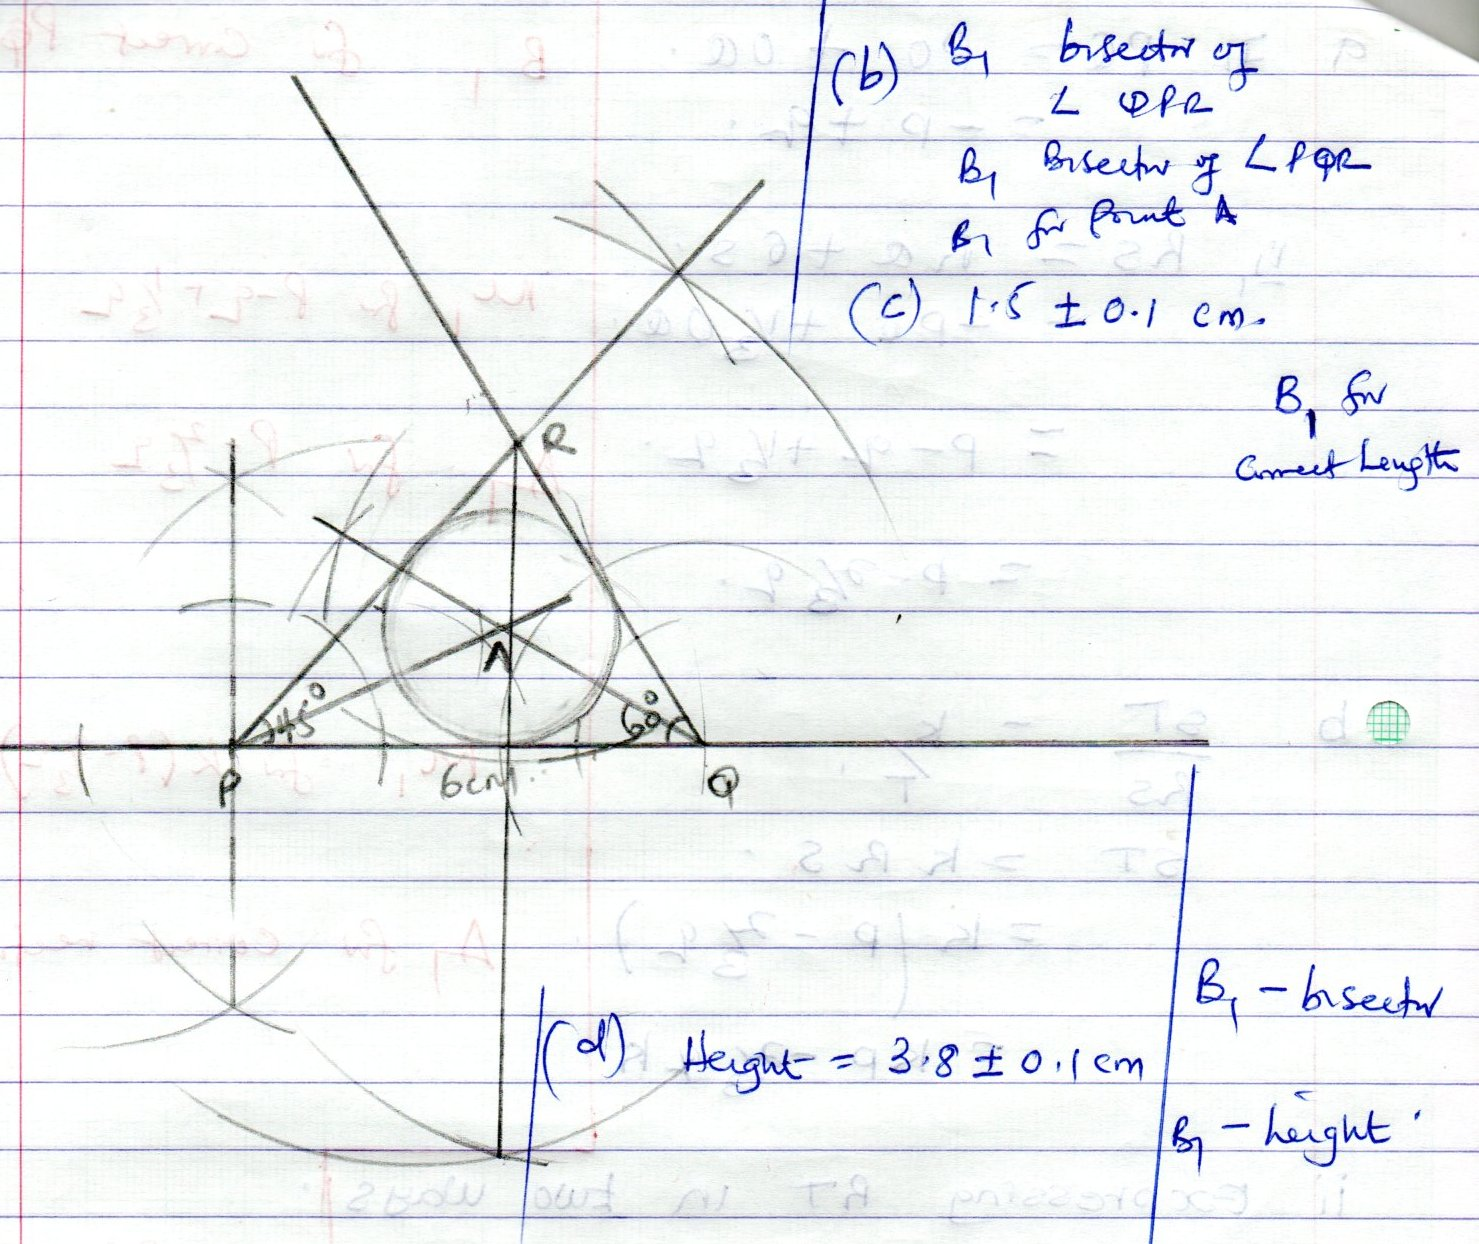 (b) B1 bisector of
∠ QPR
B1 Bisector of ∠ PQR
B1 for Point A
(c) 1.5 ± 0.1 cm.
B1 for
Correct Length
R
A
45°
60°
P
6cm
Q
(d) Height = 3.8 ± 0.1 cm
B1 – bisector
B1 – height